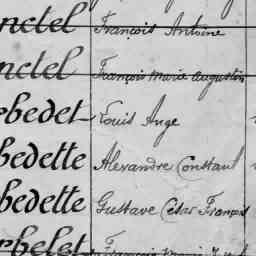 nctel François Antoine
nctel François Marie Augustin
bedet Louis Ange
bedette Alexandre Constant
bedette Gustave César François
rbelet François Marie